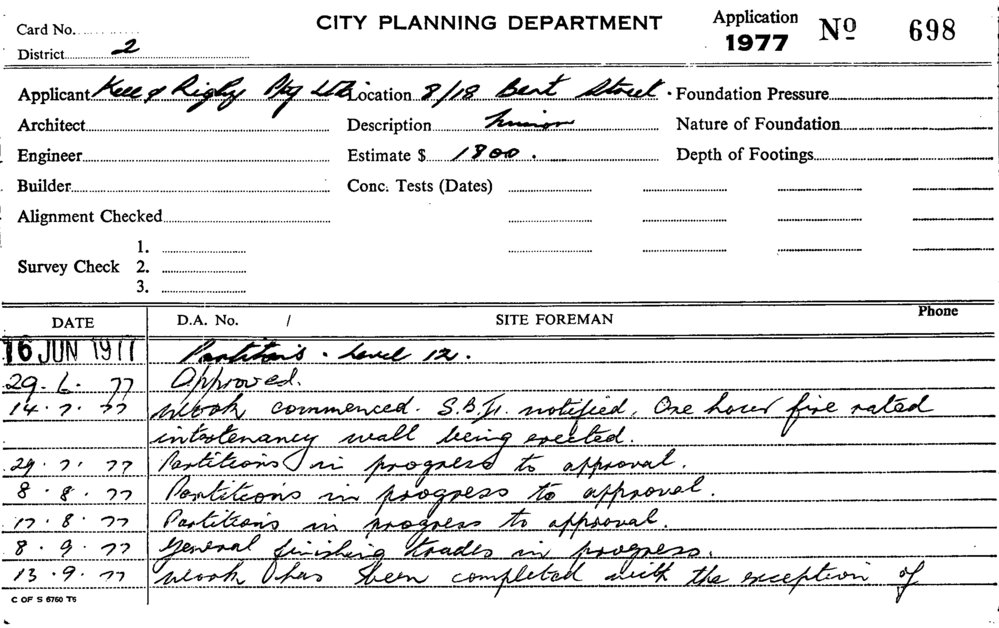 Card No.
CITY PLANNING DEPARTMENT
Application 1977 Nº 698
District 2
Applicant Kell & Rigby Pty Ltd Location 8/18 Bent Street. Foundation Pressure
Architect Description Nature of Foundation
Engineer Estimate $ 1800. Depth of Footings
Builder Conc. Tests (Dates)
Alignment Checked
1.
Survey Check 2.
3.
DATE D.A. No. / SITE FOREMAN Phone
16 JUN 1977 Partitions. Level 12.
29. 6. 77 Approved.
14. 7. 77 Work commenced. notified. One hour fire rated
intertenancy wall being erected.
29. 7. 77 Partitions in progress to approval.
8. 8. 77 Partitions in progress to approval.
17. 8. 77 Partitions in progress to approval.
8. 9. 77 General finishing trades in progress.
13. 9. 77 Work has been completed with the exception of
C OF S 6760 T5